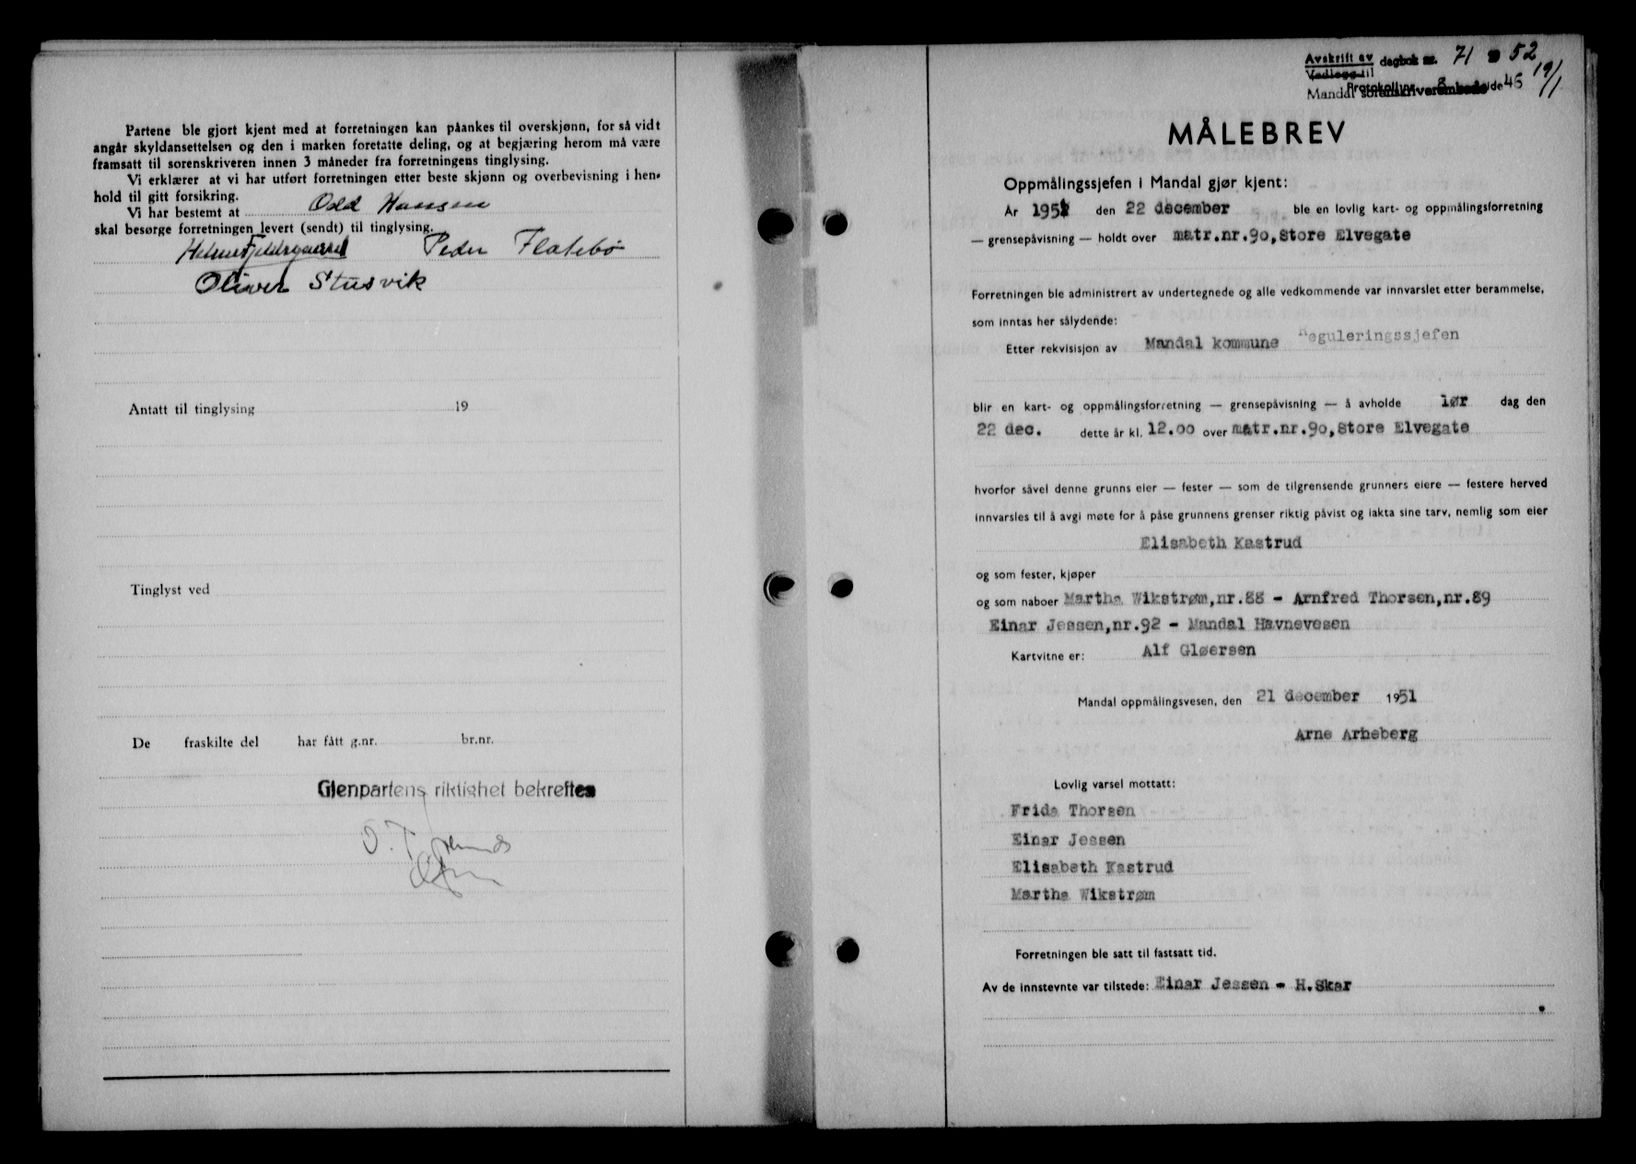 Partene ble gjort kjent med at forretningen kan påankes til overskjønn, for så vidt
angår skyldansettelsen og den i marken foretatte deling, og at begjæring herom må være
framsatt til sorenskriveren innen 3 måneder fra forretningens tinglysing.
Vi erklærer at vi har utført forretningen etter beste skjønn og overbevisning i hen-
hold til gitt forsikring.
Vi har bestemt at Odd Hansen
skal besørge forretningen levert (sendt) til tinglysing.
Peder Flatebø
Oliver Stusvik
Antatt til tinglysing 19
Tinglyst ved
De fraskilte del har fått g.nr. br.nr.
Gjenpartens riktighet bekreftes
Avskrift av dagbok nr. 71 52
Vedlegg til 19/1
Mandal sorenskriverembede
Protokoll nr. 8 side 46
MÅLEBREV
Oppmålingssjefen i Mandal gjør kjent:
År 1951 den 22 december ble en lovlig kart- og oppmålingsforretning
— grensepåvisning — holdt over matr.nr.90, Store Elvegate
Forretningen ble administrert av undertegnede og alle vedkommende var innvarslet etter berammelse,
som inntas her sålydende:
Etter rekvisisjon av Mandal kommune Reguleringssjefen
blir en kart- og oppmålingsforretning — grensepåvisning — å avholde lør dag den
22 dec. dette år kl. 12.00 over matr.nr.90, Store Elvegate
hvorfor såvel denne grunns eier — fester — som de tilgrensende grunners eiere — festere herved
innvarsles til å avgi møte for å påse grunnens grenser riktig påvist og iakta sine tarv, nemlig som eier
Elisabeth Kastrud
og som fester, kjøper
og som naboer Martha Wikstrøm,nr.88 - Arnfred Thorsen,nr.89
Einar Jessen,nr.92 - Mandal Havnevesen
Kartvitne er: Alf Gløersen
Mandal oppmålingsvesen, den 21 december 1951
Arne Arheberg
Lovlig varsel mottatt:
Frida Thorsen
Einar Jessen
Elisabeth Kastrud
Martha Wikstrøm
Forretningen ble satt til fastsatt tid.
Av de innstevnte var tilstede: Einar Jessen - H.Skar